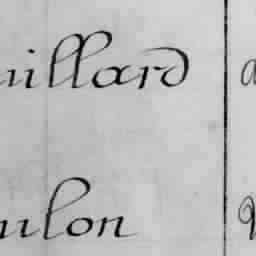 uillard
ulon